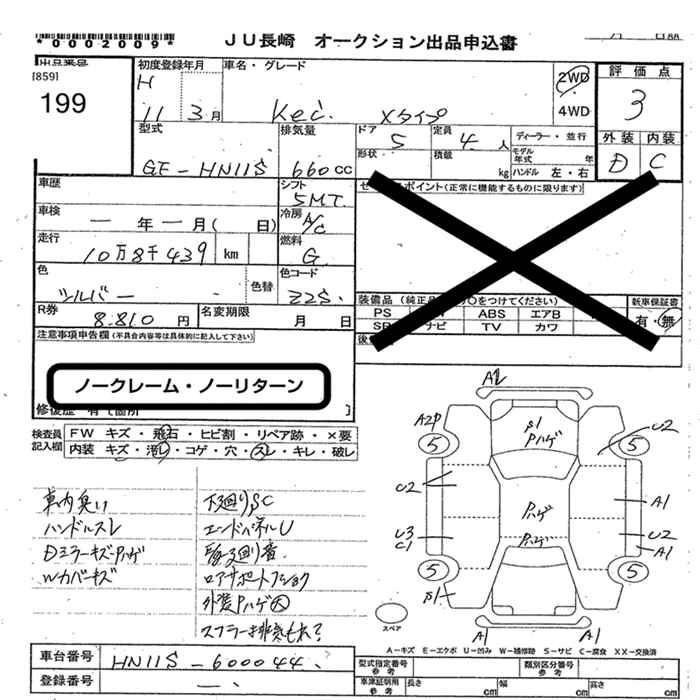 *0002009* JU長崎 オークション出品申込書
出品番号 初度登録年月 車名・グレード 評価点
[859]
199
H 11 3月 Kei Xタイプ 2WD 4WD 3
型式 排気量 ドア 5 定員 4人 ディーラー・並行 外装 内装
GF-HN11S 660cc 形状 積載 kg モデル年式 年 ハンドル 左・右 D C
車歴 シフト 5MT
車検 ー年ー月( 日) 冷房 A/C
走行 10万8千439 km 燃料 G
色 シルバー 色替 色コード Z2S
R券 8.810円 名変期限 月 日
ポイント(正常に機能するものに限ります)
装備品 (純正 ○をつけてください) 新車保証書
PS ABS エアB 有・無
ナビ TV カワ
注意事項申告欄(不具合内容等は具体的に記入して下さい)
ノークレーム・ノーリターン
検査員記入欄 FW キズ・飛石・ヒビ割・リペア跡・×要
内装 キズ・汚レ・コゲ・穴・スレ・キレ・破レ
車内臭い 下廻りSC
ハンドルスレ エンドパネルU
Dミラーキズ・Pハゲ
Wカバーキズ ロアサポートプッシュ
外装Pハゲ大
マフラー排気もれ?
A2
A2P S1 Pハゲ U2
5 5
U2 Pハゲ A1
U3 C1 Pハゲ U2 A1
5 5
S1
A1 A1
スペア
A-キズ E-エクボ U-凹み W-補修跡 S-サビ C-腐食 XX-交換済
車台番号 HN11S-600044
登録番号 ー
型式指定番号 参考 類別区分番号 参考
車検証割用 参考 長さ cm 幅 cm 高さ cm